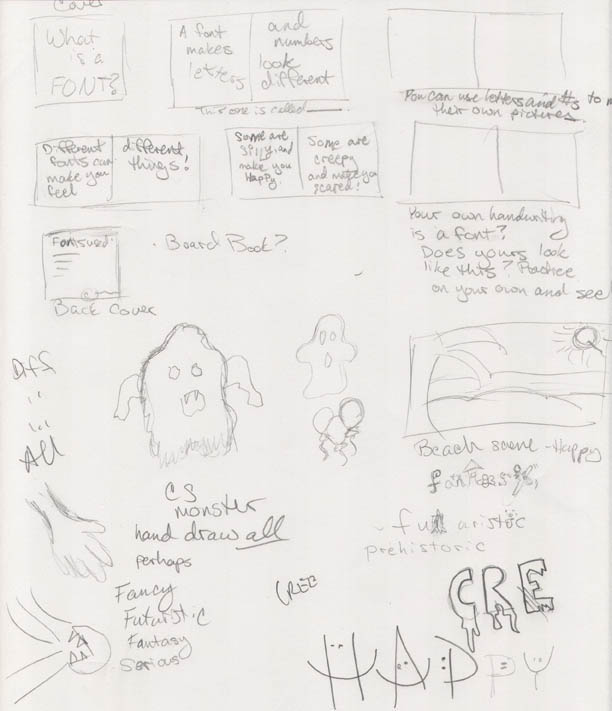 Cover
What
is a
FONT?
A font
makes
letters
and
numbers
look
different
This one is called
You can use letters and #s to m
their own pictures.
Different
fonts can
make you
feel
different
things!
Some are
silly, and
make you
Happy.
Some are
creepy
and make you
scared!
Your own handwriting
is a font!
Does yours look
like this? Practice
on your own and see
Fonts used:
· Board Book?
Back Cover
Diff
All
Beach scene - Happy
fantasy
CS
monster
hand draw all
perhaps
Fancy
Futuristic
Fantasy
Serious
~ futuristic
prehistoric
CREE
CRE
HAPPY